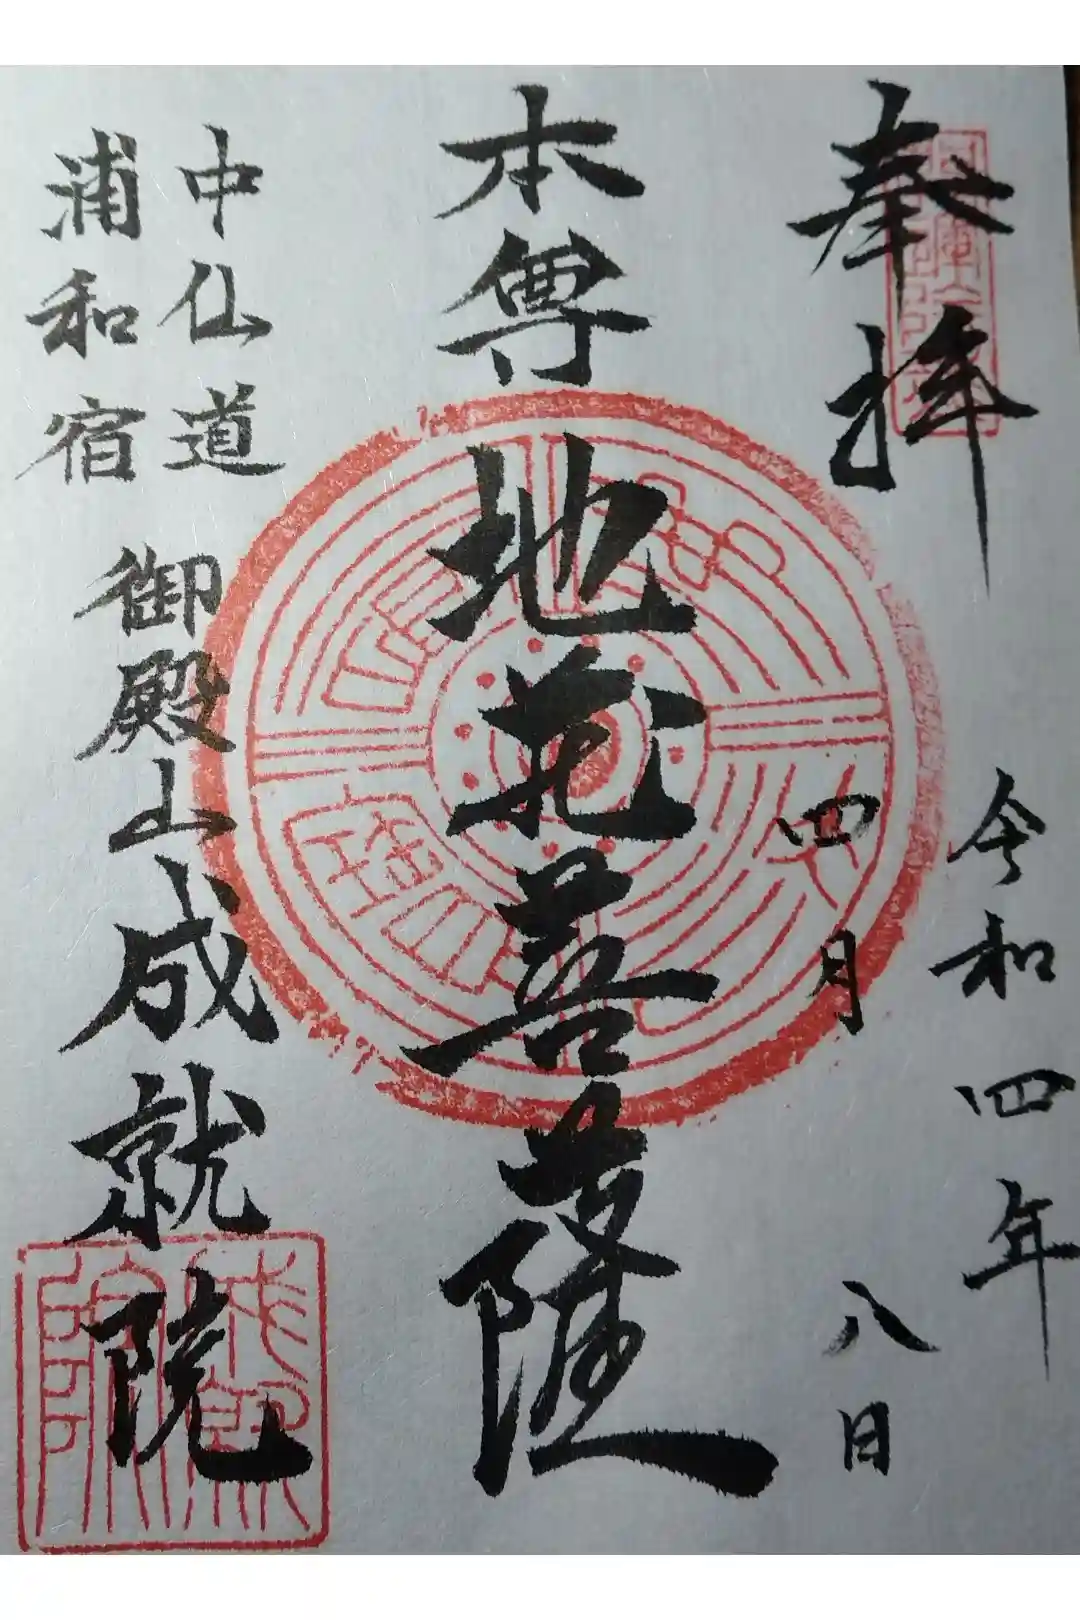 奉拝
令和四年
四月八日
本尊
地蔵菩薩
中仙道
浦和宿
御殿山成就院
成就院